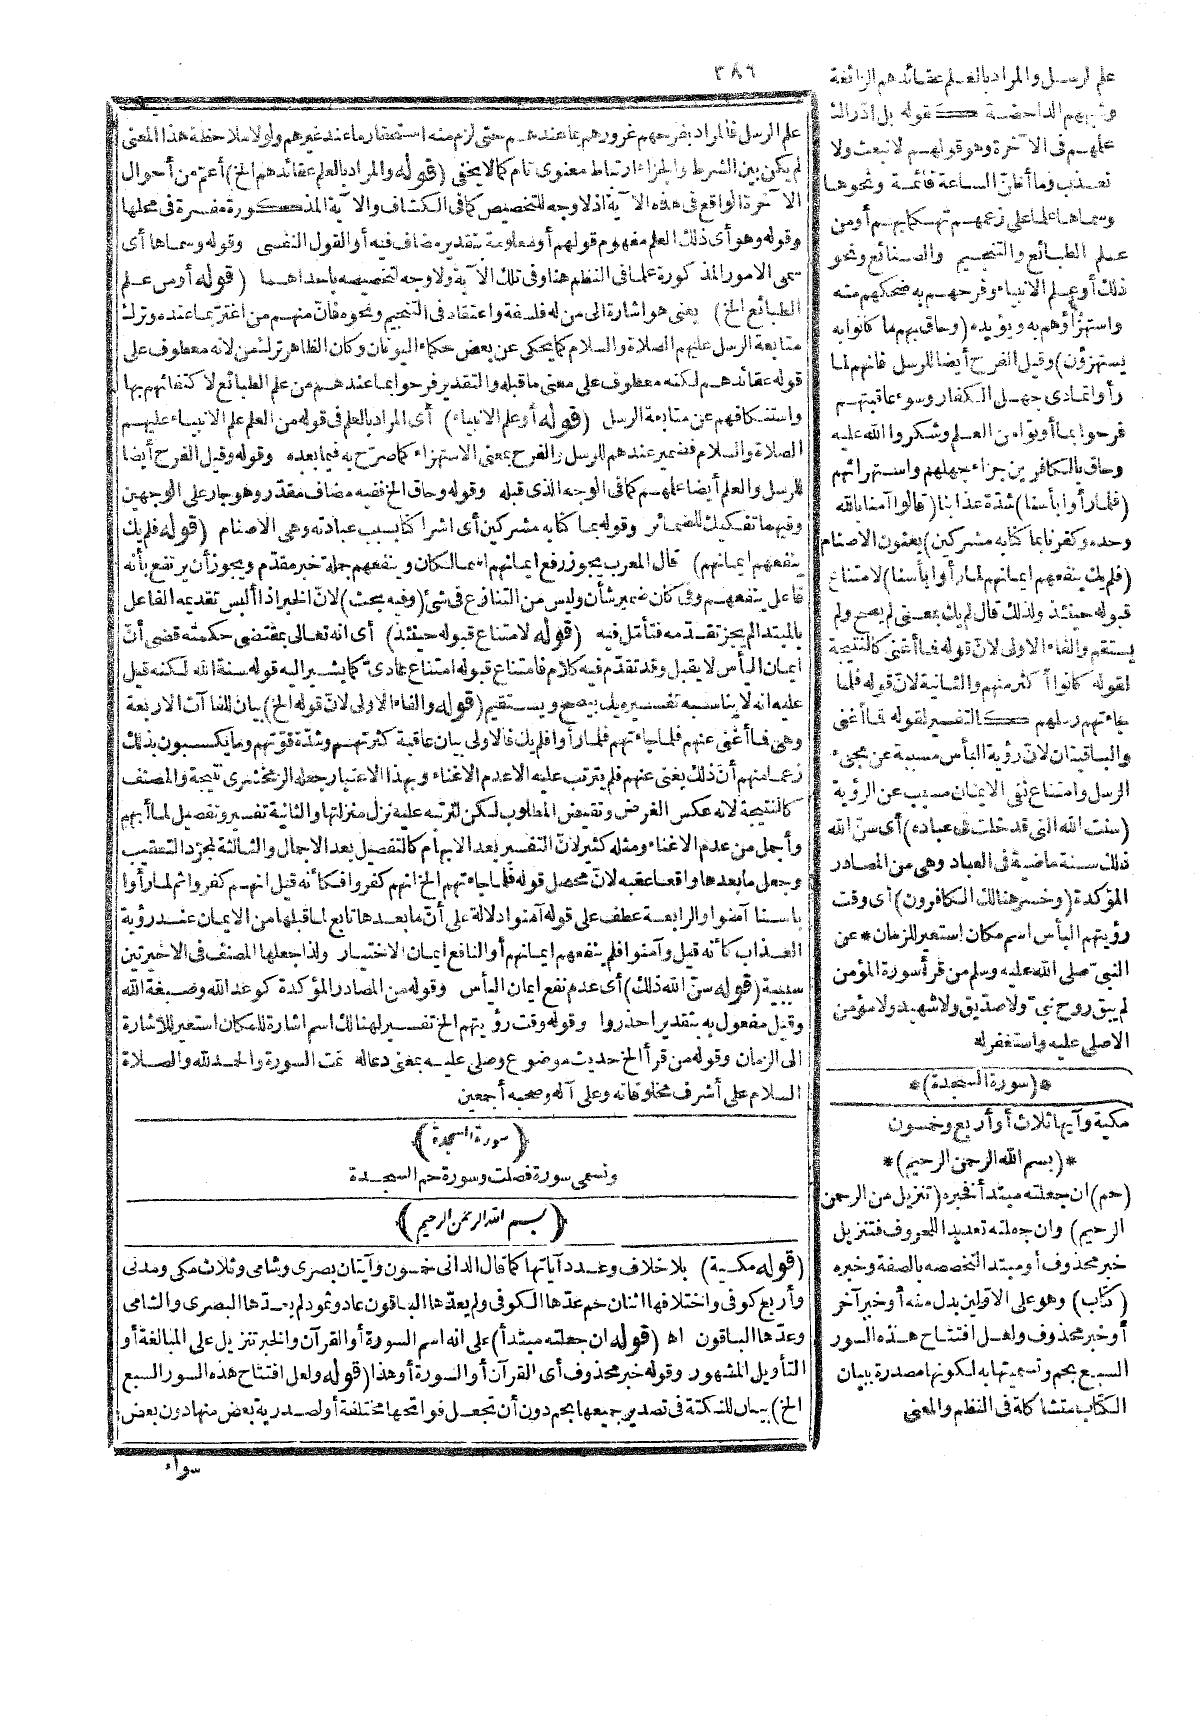 ٣٨٦
علم الرسل والمراد بالعلم عقائدهم الزائغة
وشبههم الداحضة كقوله بل ادّارك
علمهم فى الآخرة وهو قولهم لا نبعث ولا
نعذب وما أظن الساعة قائمة ونحوها
وسماها علما على زعمهم تهكما بهم أو من
علم الطبائع والتنجيم والصنائع ونحو
ذلك أو علم الانبياء وفرحهم به ضحكهم منه
واستهزاؤهم به ويؤيده (وحاق بهم ما كانوا به
يستهزؤن) وقيل الفرح أيضا للرسل فانهم لما
رأوا تمادى جهل الكفار وسوء عاقبتهم
فرحوا بما أوتوا من العلم وشكروا الله عليه
وحاق بالكافرين جزاء جهلهم واستهزائهم
(فلما رأوا بأسنا) شدة عذابنا (قالوا آمنا بالله
وحده وكفرنا بما كنا به مشركين) يعنون الاصنام
(فلم يك ينفعهم ايمانهم لما رأوا بأسنا) لامتناع
قبوله حينئذ ولذلك قال لم يك بمعنى لم يصح ولم
يستقم والفاء الاولى لانّ قوله فما أغنى كالنتيجة
لقوله كانوا أكثر منهم والثانية لانّ قوله فلما
جاءتهم رسلهم كالتفسير لقوله فما أغنى
والباقيتان لانّ رؤية البأس مسببة عن مجىء
الرسل وامتناع نفى الايمان مسبب عن الرؤية
(سنت الله التى قد خلت فى عباده) أى سنّ الله
ذلك سنة ماضية فى العباد وهى من المصادر
المؤكدة (وخسر هنالك الكافرون) أى وقت
رؤيتهم البأس اسم مكان استعير للزمان * عن
النبىّ صلى الله عليه وسلم من قرأ سورة المؤمن
لم يبق روح نبىّ ولا صدّيق ولا شهيد ولا مؤمن
الا صلى عليه واستغفر له
*(سورة السجدة)*
مكية وآيها ثلاث أو أربع وخمسون
*(بسم الله الرحمن الرحيم)*
(حم) ان جعلته مبتدأ فخبره (تنزيل من الرحمن
الرحيم) وان جعلته تعديدا للحروف فتنزيل
خبر محذوف أو مبتدأ لتخصصه بالصفة وخبره
(كتاب) وهو على الاوّلين بدل منه أو خبر آخر
أو خبر محذوف ولعل افتتاح هذه السور
السبع بحم وتسميتها به لكونها مصدرة ببيان
الكتاب متشاكلة فى النظم والمعنى
علم الرسل فالمراد بفرحهم غرورهم بما عندهم حتى لزم منه استحقار ما عند غيرهم ولولا ملاحظة هذا المعنى
لم يكن بين الشرط والجزاء ارتباط معنوى تام كما لا يخفى (قوله والمراد بالعلم عقائدهم الخ) أعمّ من أحوال
الآخرة الواقع فى هذه الآية اذ لا وجه للتخصيص كما فى الكشاف والآية المذكورة مفسرة فى محلها
وقوله وهو أى ذلك العلم مفهوم قولهم أو معلومه بتقدير مضاف فيه أو القول النفسى وقوله وسماها أى
سمى الامور المذكورة علما فى النظم هنا وفى تلك الآية ولا وجه لتخصيصه باحداهما (قوله أو من علم
الطبائع الخ) يعنى هو اشارة الى من له فلسفة واعتقاد فى التنجيم ونحوه فانّ منهم من اغترّ بما عنده وترك
متابعة الرسل عليهم الصلاة والسلام كما يحكى عن بعض حكماء اليونان وكان الظاهر ترك من لانه معطوف على
قوله عقائدهم لكنه معطوف على معنى ما قبله والتقدير فرحوا بما عندهم من علم الطبائع لاكتفائهم بها
واستنكافهم عن متابعة الرسل (قوله أو علم الانبياء) أى المراد بالعلم فى قوله من العلم علم الانبياء عليهم
الصلاة والسلام فضمير عندهم للرسل والفرح بمعنى الاستهزاء كما صرّح به فيما بعده وقوله وقيل الفرح أيضا
للرسل والعلم أيضا علمهم كما فى الوجه الذى قبله وقوله وحاق الخ ففيه مضاف مقدّر وهو جار على الوجهين
وفيهما تفكيك للضمائر وقوله بما كنا به مشركين أى اشراكنا بسبب عبادته وهى الاصنام (قوله فلم يك
ينفعهم ايمانهم) قال المعرب يجوز رفع ايمانهم اسما لكان وينفعهم جملة خبر مقدّم ويجوز أن يرتفع بأنه
فاعل ينفعهم وفى كان ضمير شأن وليس من التنازع فى شئ (وفيه بحث) لانّ الخبر اذا ألبس تقديمه الفاعل
بالمبتدا لم يجز تقدمه فتأمل فيه (قوله لامتناع قبوله حينئذ) أى انه تعالى بمقتضى حكمته قضى أنّ
ايمان اليأس لا يقبل وقد تقدّم فيه كلام فامتناع قبوله امتناع عادىّ كما يشير اليه قوله سنة الله لكنه قيل
عليه انه لا يناسبه تفسيره يك بيصح ويستقيم (قوله والفاء الاولى لانّ قوله الخ) بيان للفاآت الاربعة
وهى فما أغنى عنهم فلما جاءتهم فلما رأوا فلم يك فالاولى بيان عاقبة كثرتهم وشدّة قوّتهم وما يكسبون بذلك
زعما منهم أنّ ذلك يغنى عنهم فلم يترتب عليه الا عدم الاغناء وبهذا الاعتبار جعله الزمخشرى نتيجة والمصنف
كالنتيجة لانه عكس الغرض ونقيض المطلوب لكن لترتبه عليه نزل منزلتها والثانية تفسير وتفصيل لما أبهم
وأجمل من عدم الاغناء ومثله كثير لانّ التفسير بعد الابهام كالتفصيل بعد الاجمال والثالثة لمجرّد التعقيب
وجعل ما بعدها واقعا عقبه لانّ محصل قوله فلما جاءتهم الخ انهم كفروا فكأنه قيل انهم كفروا ثم لما رأوا
بأسنا آمنوا والرابعة عطف على قوله آمنوا دلالة على أنّ ما بعدها تابع لما قبلها من الايمان عند رؤية
العذاب كأنه قيل وآمنوا فلم ينفعهم ايمانهم أو النافع ايمان الاختيار ولذا جعلها المصنف فى الاخيرتين
سببية (قوله سنّ الله ذلك) أى عدم نفع ايمان اليأس وقوله من المصادر المؤكدة كوعد الله وصبغة الله
وقيل مفعول به بتقدير احذروا وقوله وقت رؤيتهم الخ تفسير لهنالك اسم اشارة للمكان استعير للاشارة
الى الزمان وقوله من قرأ الخ حديث موضوع وصلى عليه بمعنى دعا له تمت السورة والحمد لله والصلاة
السلام على أشرف مخلوقاته وعلى آله وصحبه أجمعين
(سورة السجدة)
وتسمى سورة فصلت وسورة حم السجدة
(بسم الله الرحمن الرحيم)
(قوله مكية) بلا خلاف وعدد آياتها كما قال الدانى خمسون وآيتان بصرى وشامى وثلاث مكى ومدنى
وأربع كوفى واختلافها اثنان حم عدّها الكوفى ولم يعدّها الباقون عاد وثمود لم يعدّها البصرى والشامى
وعدّها الباقون اه (قوله ان جعلته مبتدأ) على انه اسم السورة أو القرآن والخبر تنزيل على المبالغة أو
التأويل المشهور وقوله خبر محذوف أى القرآن أو السورة أو هذا (قوله ولعل افتتاح هذه السور السبع
الخ) بيان للنكتة فى تصدير جميعها بحم دون أن تجعل فواتحها مختلفة أو لصدرية بعض منها دون بعض
سواء